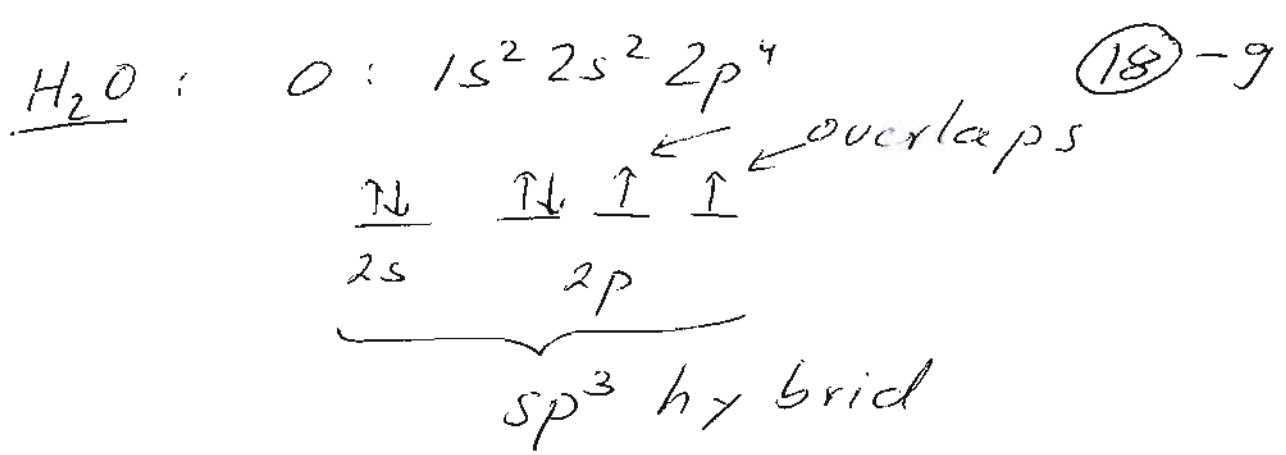 H₂O : O : 1s² 2s² 2p⁴ (18)-9
overlaps
↑↓ ↑↓ ↑ ↑
2s 2p
sp³ hybrid